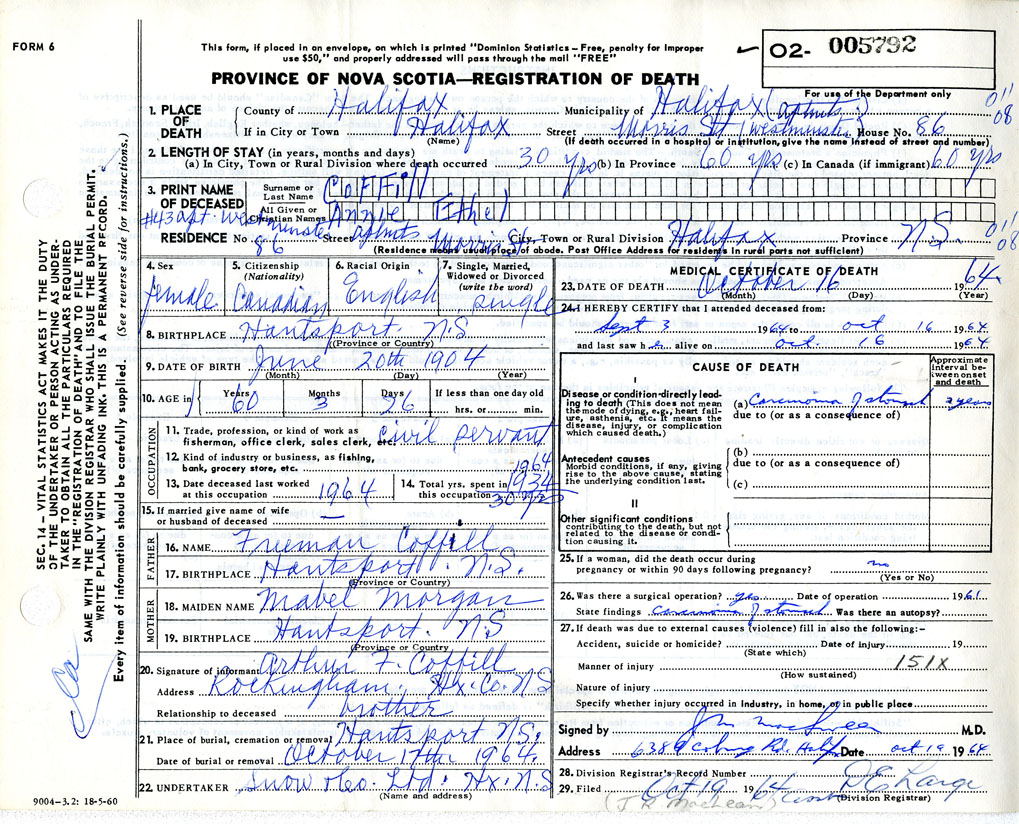 FORM 6
This form, if placed in an envelope, on which is printed "Dominion Statistics – Free, penalty for improper
use $50," and properly addressed will pass through the mail "FREE"
O2- 005792
For use of the Department only
PROVINCE OF NOVA SCOTIA—REGISTRATION OF DEATH
1. PLACE OF DEATH County of Halifax Municipality of Halifax (aptmts) 01 08
If in City or Town Halifax Street Morris St (Westminster House No. 86
(Name) (If death occurred in a hospital or institution, give the name instead of street and number)
2. LENGTH OF STAY (in years, months and days)
(a) In City, Town or Rural Division where death occurred 30 yrs (b) In Province 60 yrs (c) In Canada (if immigrant) 60 yrs
3. PRINT NAME OF DECEASED Surname or Last Name Coffill
All Given or Christian Names Annie Ethel
#43 apt. Westminster aptmts
RESIDENCE No. 86 Street Morris St. City, Town or Rural Division Halifax Province N.S. 01 08
(Residence means usual place of abode. Post Office Address for residents in rural parts not sufficient)
4. Sex female
5. Citizenship (Nationality) Canadian
6. Racial Origin English
7. Single, Married, Widowed or Divorced (write the word) single
8. BIRTHPLACE Hantsport. N.S
(Province or Country)
9. DATE OF BIRTH June 20th 1904
(Month) (Day) (Year)
10. AGE in Years 60 Months 3 Days 26 If less than one day old hrs. or min.
OCCUPATION
11. Trade, profession, or kind of work as fisherman, office clerk, sales clerk, etc. civil servant
12. Kind of industry or business, as fishing, bank, grocery store, etc.
13. Date deceased last worked at this occupation 1964
14. Total yrs. spent in this occupation 1964 1934 30 yrs
15. If married give name of wife or husband of deceased —
FATHER
16. NAME Freeman Coffill
17. BIRTHPLACE Hantsport. N.S.
(Province or Country)
MOTHER
18. MAIDEN NAME Mabel Morgan
19. BIRTHPLACE Hantsport. N.S
(Province or Country)
20. Signature of informant Arthur F. Coffill
Address Rockingham, Hx. Co. N.S
Relationship to deceased brother
21. Place of burial, cremation or removal Hantsport N.S.
Date of burial or removal October 17th 1964.
22. UNDERTAKER Snow & Co. Ltd. Hx. N.S
(Name and address)
MEDICAL CERTIFICATE OF DEATH
23. DATE OF DEATH October 16 1964
(Month) (Day) (Year)
24. I HEREBY CERTIFY that I attended deceased from:
Sept 3 1964 to oct 16 1964
and last saw her alive on oct. 16 1964
CAUSE OF DEATH
Approximate interval between onset and death
I
Disease or condition directly leading to death (This does not mean the mode of dying, e.g., heart failure, asthenia, etc. It means the disease, injury, or complication which caused death.)
(a) Carcinoma of stomach 3 years
due to (or as a consequence of)
Antecedent causes
Morbid conditions, if any, giving rise to the above cause, stating the underlying condition last.
(b)
due to (or as a consequence of)
(c)
II
Other significant conditions contributing to the death, but not related to the disease or condition causing it.
25. If a woman, did the death occur during pregnancy or within 90 days following pregnancy? no
(Yes or No)
26. Was there a surgical operation? yes Date of operation 1961.
State findings Carcinoma of stomach Was there an autopsy?
27. If death was due to external causes (violence) fill in also the following:-
Accident, suicide or homicide? Date of injury 19
(State which)
Manner of injury 151X
(How sustained)
Nature of injury
Specify whether injury occurred in industry, in home, or in public place
Signed by M.D.
Address 6389 Coburg Rd. Halifax Date oct 19 1964
28. Division Registrar's Record Number
29. Filed Oct 19 1964 D E Large
(J R MacLean) (Division Registrar)
SEC. 14 – VITAL STATISTICS ACT MAKES IT THE DUTY
OF THE UNDERTAKER OR PERSON ACTING AS UNDER-
TAKER TO OBTAIN ALL THE PARTICULARS REQUIRED
IN THE "REGISTRATION OF DEATH" AND TO FILE THE
SAME WITH THE DIVISION REGISTRAR WHO SHALL ISSUE THE BURIAL PERMIT.
WRITE PLAINLY WITH UNFADING INK. THIS IS A PERMANENT RECORD.
Every item of information should be carefully supplied. (See reverse side for instructions.)
9004-3.2: 18-5-60